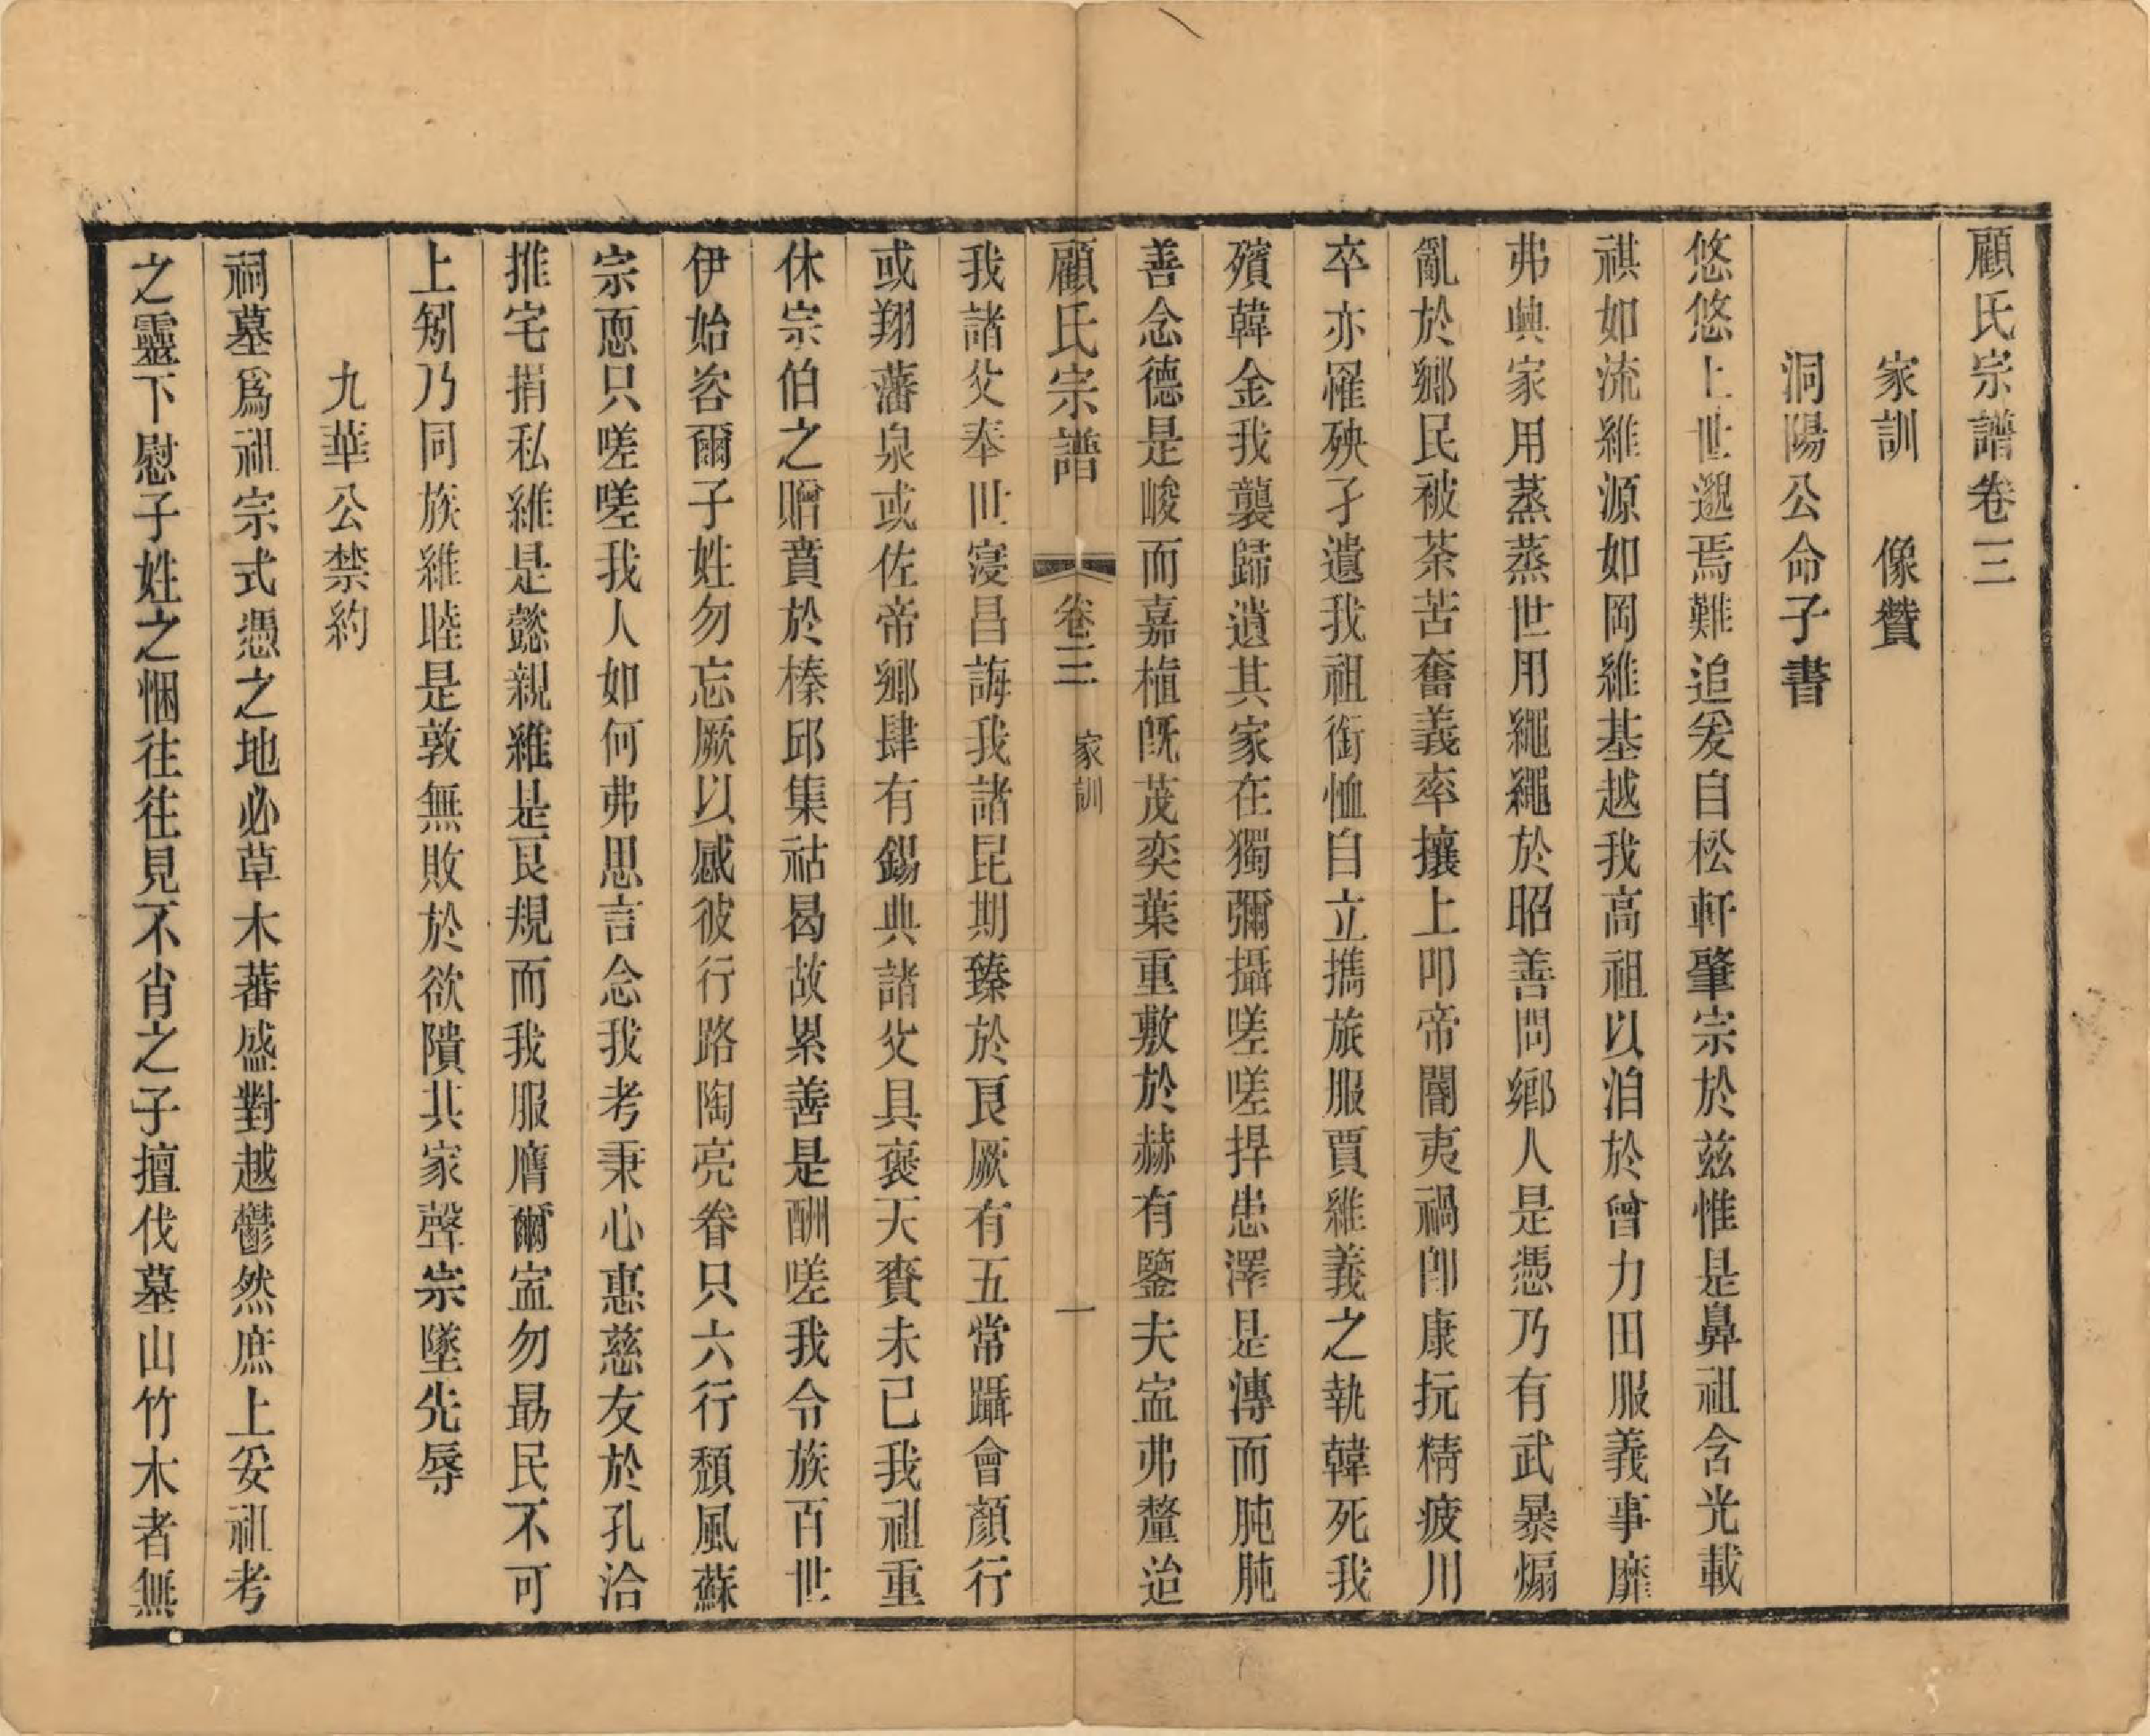 顧氏宗譜卷三
家訓　像贊
洞陽公命子書
悠悠上世邈焉難追爰自松軒肇宗於茲惟是鼻祖含光載
祺如流維源如岡維基越我高祖以洎於曾力田服義事靡
弗興家用蒸蒸世用繩繩於昭善問鄉人是憑乃有武暴煽
亂於鄉民被荼苦奮義率攘上叩帝閽夷禍卽康抏精疲川
卒亦罹殃孑遺我祖銜恤自立攜旅服賈維義之執韓死我
殯韓金我襲歸遺其家在獨彌攝嗟嗟捍患澤是溥而肫肫
善念德是峻而嘉植旣茂奕葉重敷於赫有鑒夫寍弗釐迨
顧氏宗譜　卷三　家訓　一
我諸父奉世寖昌誨我諸昆期臻於良厥有五常躡會顏行
或翔藩泉或佐帝鄉肆有錫典諸父具褒天賚未已我祖重
休宗伯之贈賁於榛邱集祜曷故累善是酬嗟我令族百世
伊始咨爾子姓勿忘厥以感彼行路陶亮眷只六行頹風蘇
宗恧只嗟嗟我人如何弗思言念我考秉心惠慈友於孔洽
推宅捐私維是懿親維是良規而我服膺爾寍勿勗民不可
上矧乃同族維睦是敦無敗於欲隤其家聲宗墜先辱
九華公禁約
祠墓爲祖宗式憑之地必草木蕃盛對越鬱然庶上妥祖考
之靈下慰子姓之悃往往見不肖之子擅伐墓山竹木者無